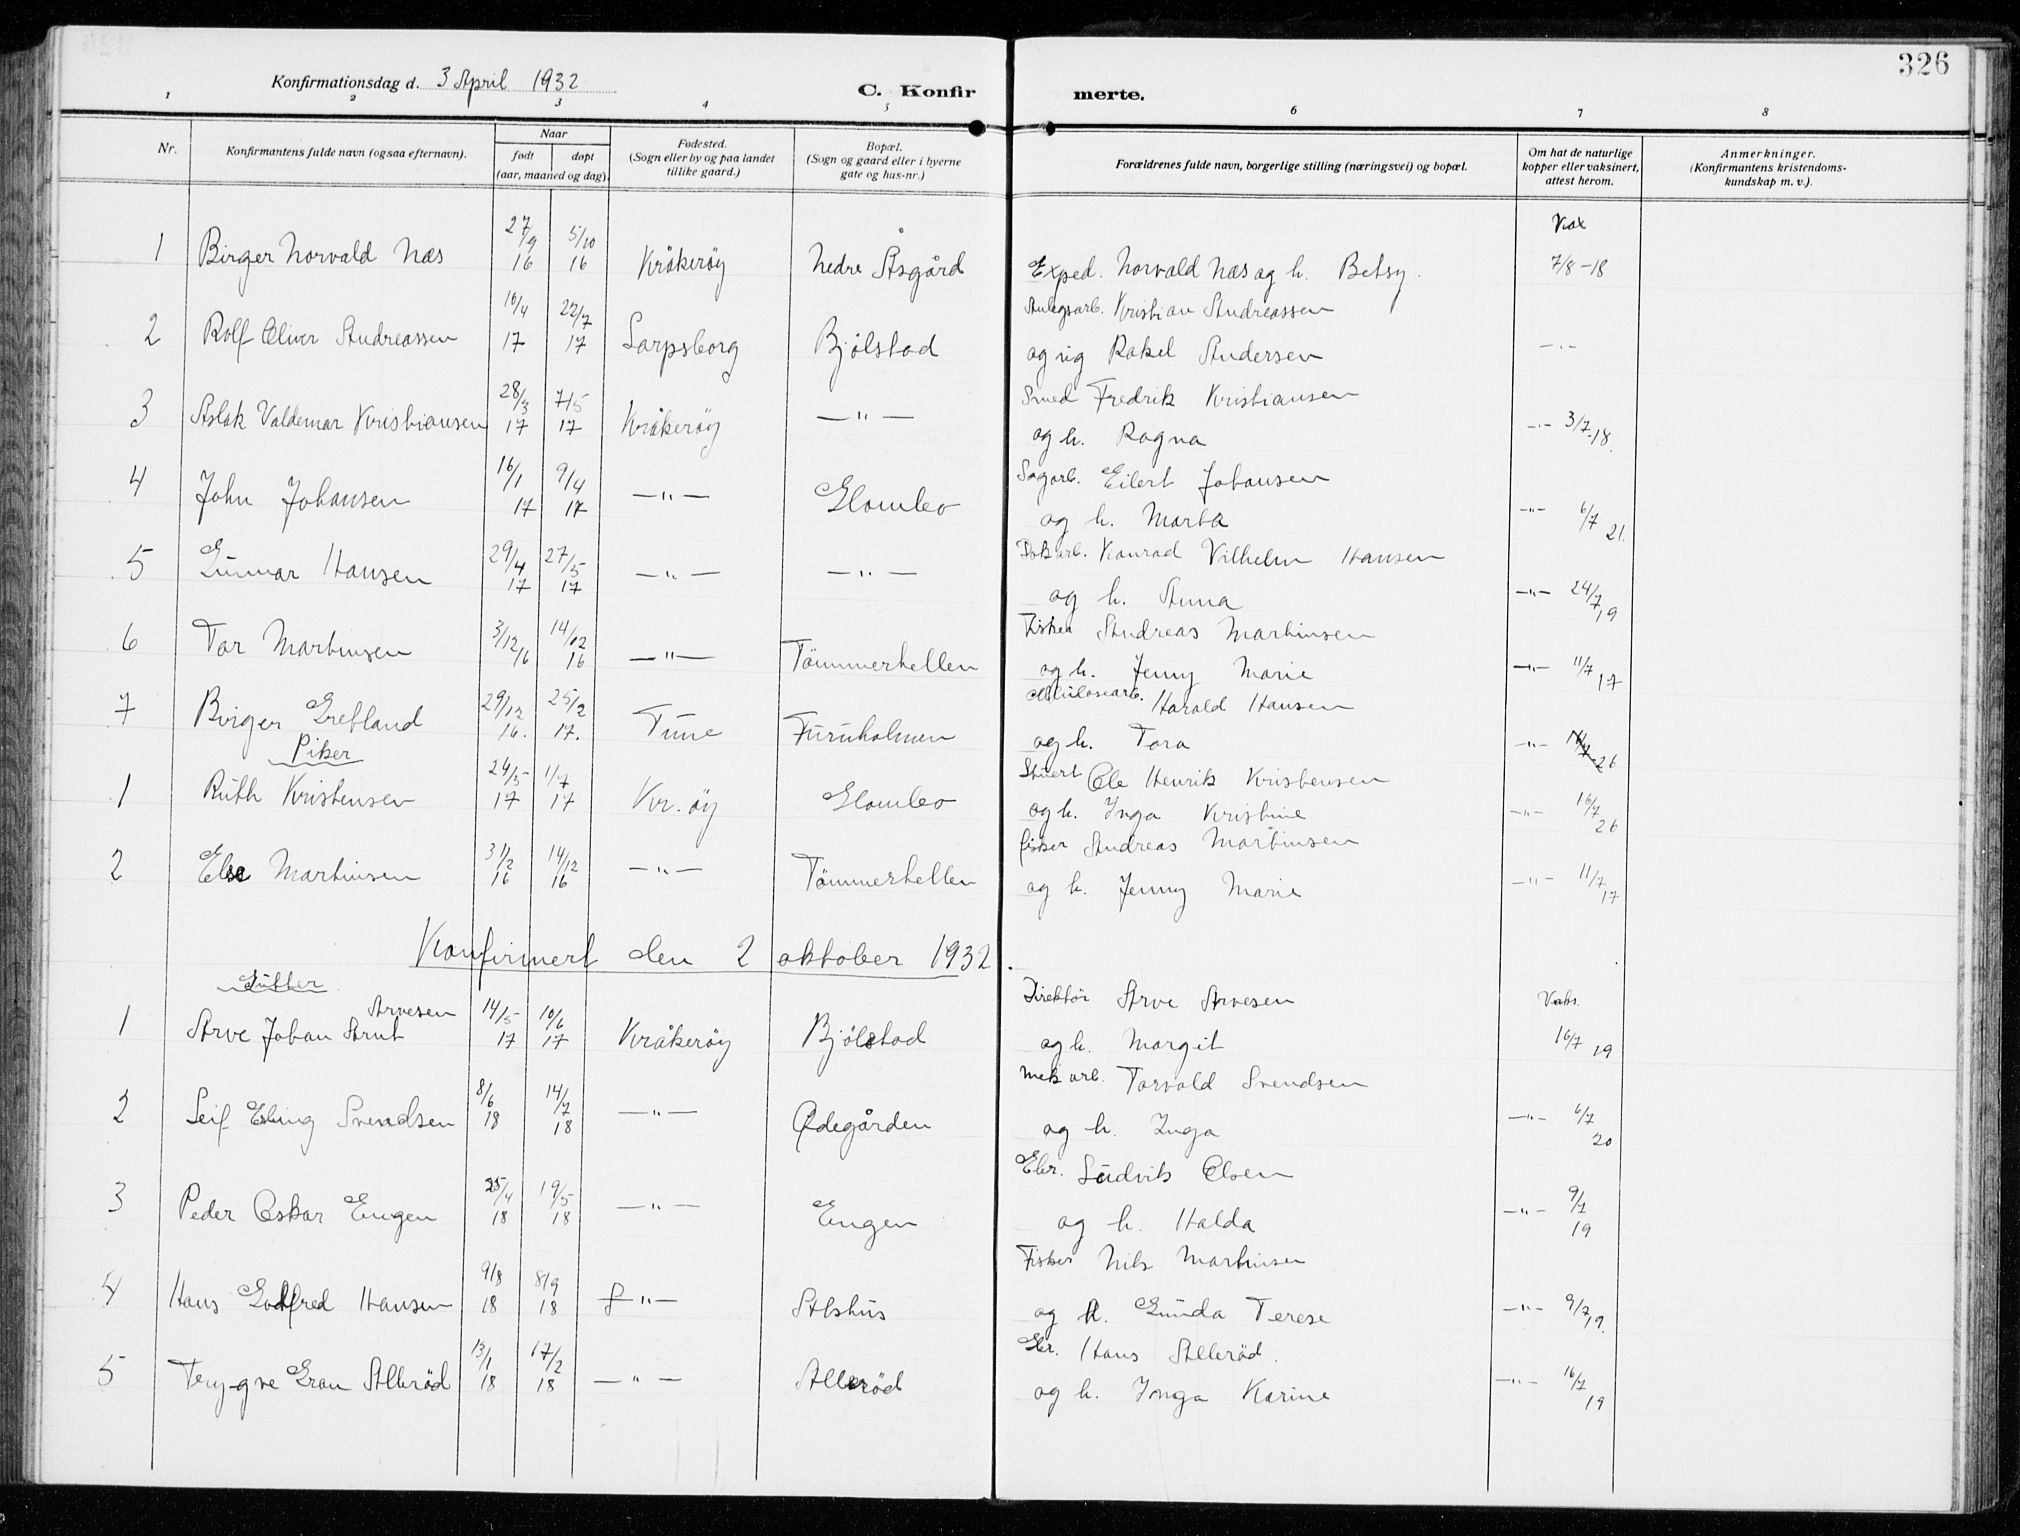 326
Konfirmationsdag d. 3 April 1932
C. Konfirmerte.
1 2 3 4 5 6 7 8
Nr.
Konfirmantens fulde navn (ogsaa efternavn).
Naar
født døpt
(aar, maaned og dag).
Fødested.
(Sogn eller by og paa landet
tillike gaard.)
Bopæl.
(Sogn og gaard eller i byerne
gate og hus-nr.)
Forældrenes fulde navn, borgerlige stilling (næringsvei) og bopæl.
Om hat de naturlige
kopper eller vaksinert,
attest herom.
Anmerkninger.
(Konfirmantens kristendoms-
kundskap m. v.).
1 Birger Norvald Næs 27/9 16 5/10 16 Kråkerøy Nedre Åsgård Exped. Norvald Næs og h. Betsy. Vax 7/8-18
2 Rolf Oliver Andreassen 16/4 17 22/7 17 Sarpsborg Bjølstad Anlegsarb. Kristian Andreassen
og ug Rakel Andersen -"-
3 Aslak Valdemar Kristiansen 28/3 17 7/5 17 Kråkerøy -"- Smed Fredrik Kristiansen
og h. Ragna -"- 3/7-18.
4 John Johansen 16/1 17 9/4 17 -"- Glombo Sagarb. Eilert Johansen
og h. Marta -"- 6/7 21.
5 Gunnar Hansen 29/4 17 27/5 17 -"- -"- Dokarb. Konrad Vilhelm Hansen
og h. Anna -"- 24/7 19
6 Tor Martinsen 3/12 16 14/12 16 -"- Tømmerhellen Fisker Andreas Martinsen
og h. Jenny Marie -"- 11/7 17
7 Birger Grefland 29/12 16. 25/2 17. Tune Furuholmen Cellulosearb. Harald Hansen
og h. Tora -"- 26
Piker
1 Ruth Kristensen 24/5 17 1/7 17 Kr.øy Glombo Stuert Ole Henrik Kristensen
og h. Inga Kristine -"- 16/7 26
2 Else Martinsen 3/12 16 14/12 16 -"- Tømmerhellen fisker Andreas Martinsen
og h. Jenny Marie -"- 11/7 17
Konfirmert den 2 oktober 1932.
Gutter
1 Arve Johan Arnt Arvesen 14/5 17 10/6 17 Kråkerøy Bjølstad Direktør Arve Arvesen
og h. Margit Vaks. 16/7 19
2 Leif Erling Svendsen 8/6 18 14/7 18 -"- Ødegården Mek arb. Torvald Svendsen
og h. Inga -"- 6/7 20
3 Peder Oskar Engen 25/4 18 19/5 18 -"- Engen Gbr. Ludvik Olsen
og h. Halda -"- 9/7 19
4 Hans Godfred Hansen 9/8 18 8/9 18 -"- Alshus Fisker Nils Martinsen
og h. Gunda Terese -"- 9/7 19.
5 Terygve Gran Allerød 13/1 18 17/2 18 -"- Allerød Gbr. Hans Allerød.
og h. Inga Karine -"- 16/7 19